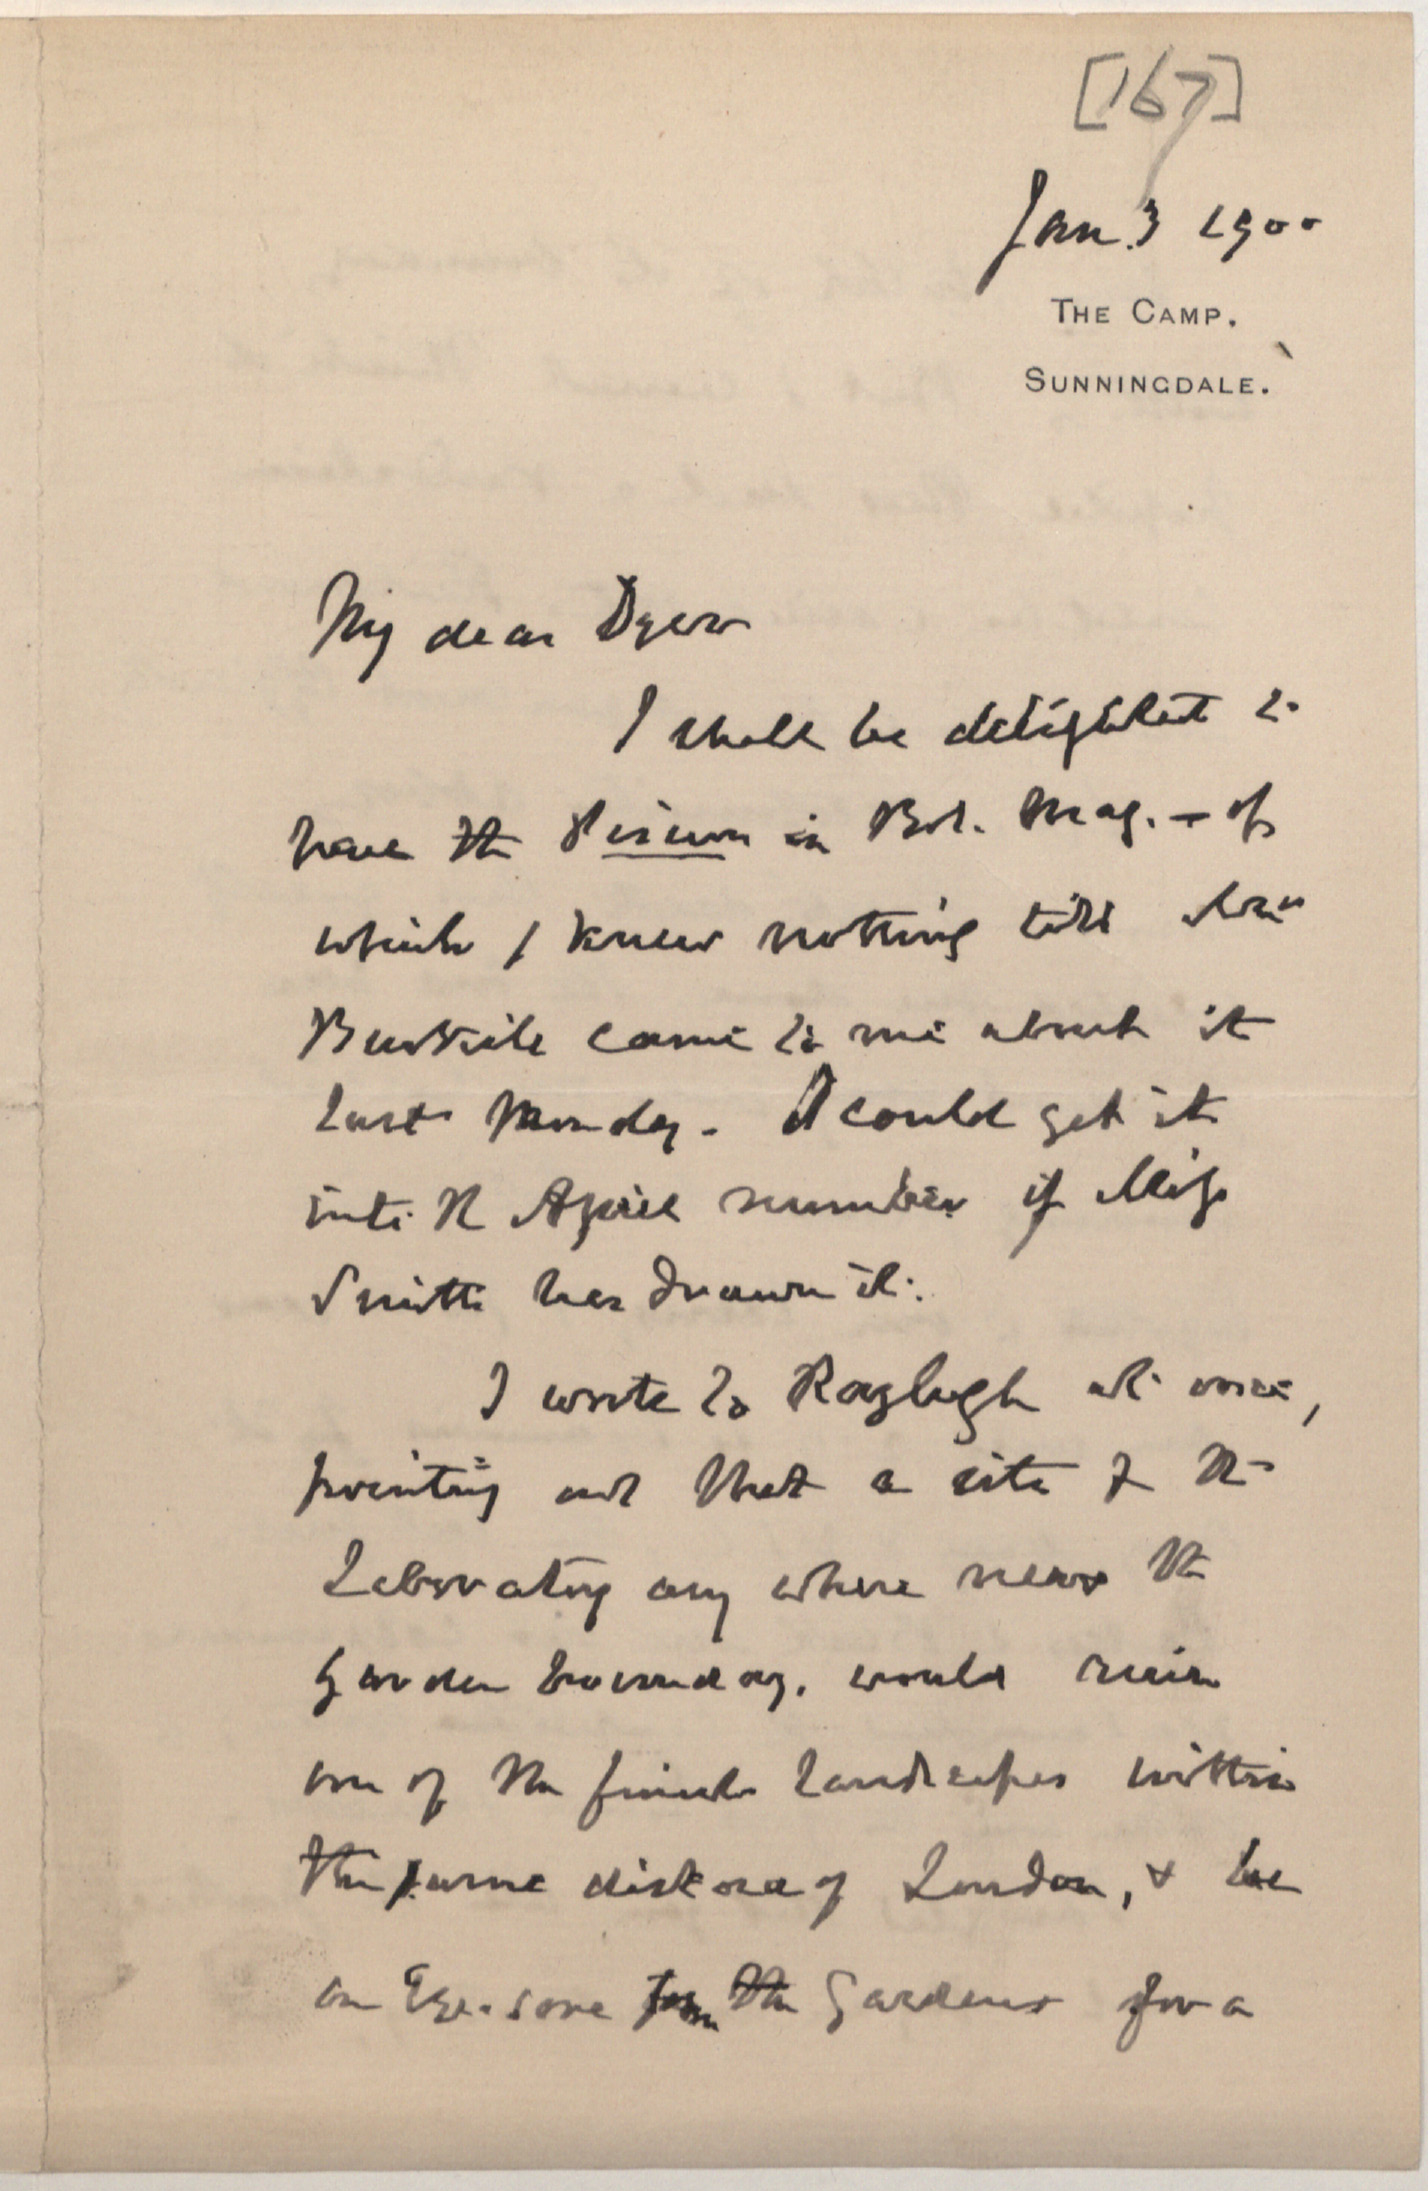 [167]
Jan. 3 1900
THE CAMP.
SUNNINGDALE.
My dear Dyer
I shall be delighted to
have the in Bot. Mag. — of
which I knew nothing till
Burkill came to me about it
last Monday. I could get it
into the April number if Miss
Smith has drawn it.
I wrote to Rayleigh at once,
pointing out that a site for the
Laboratory any where near the
Garden boundary, would ruin
one of the finest landscapes within
the same distance of London, & be
an Eye-sore from the Gardens for a